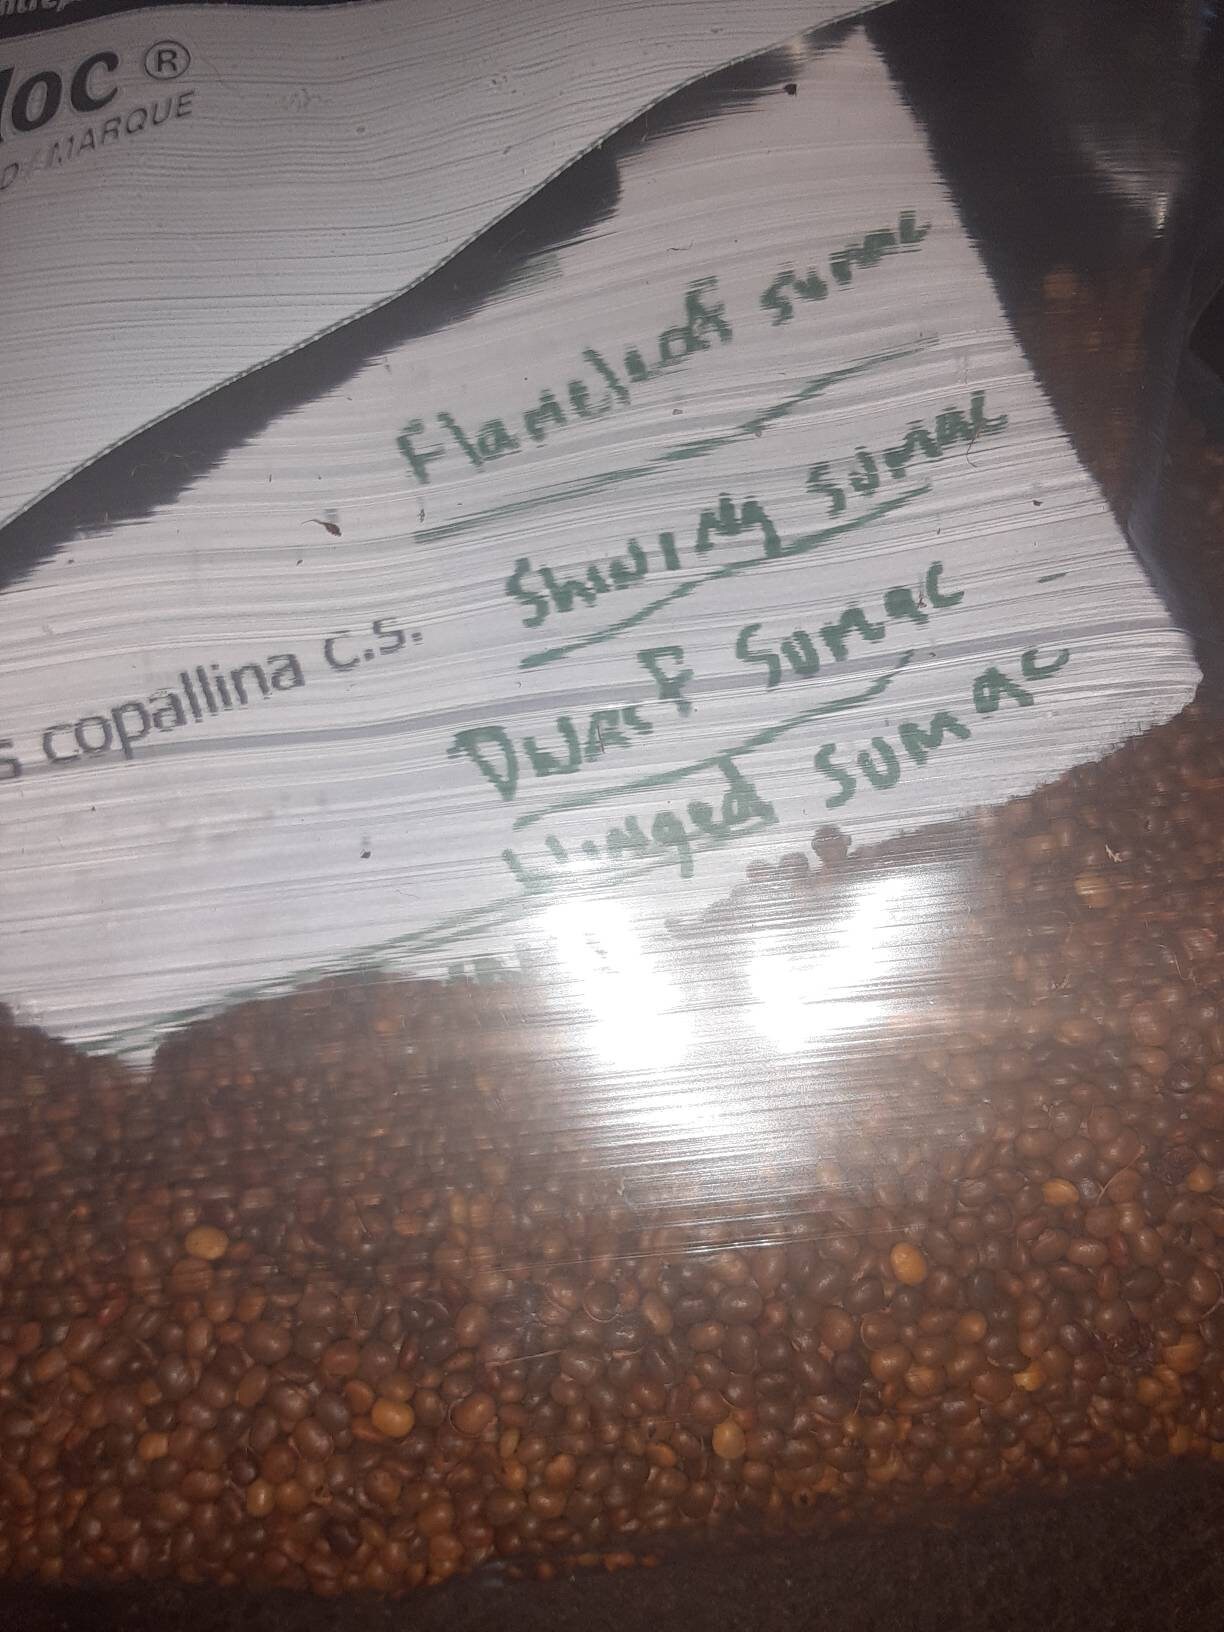 loc ®
D/MARQUE
Flameleaf sumac
Shining Sumac
s copallina c.s.
Dwarf Sumac
Winged Sumac